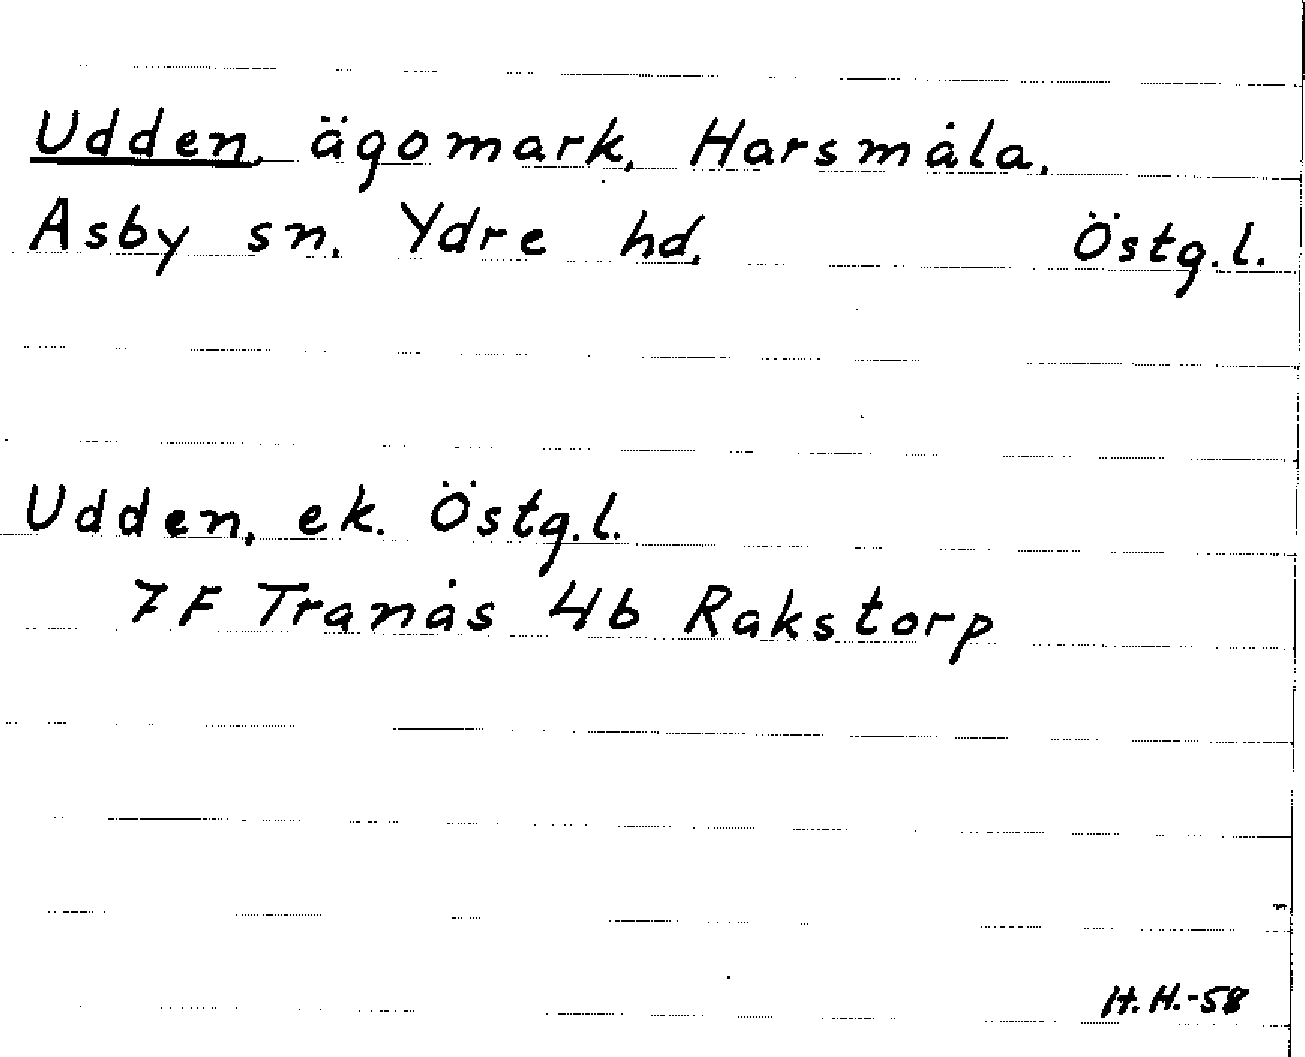 Udden, ägomark, Harsmåla,
Asby sn. Ydre hd. Östg.l.
Udden, ek. Östg.l.
7F Tranås 4b Rakstorp
H.H.-58